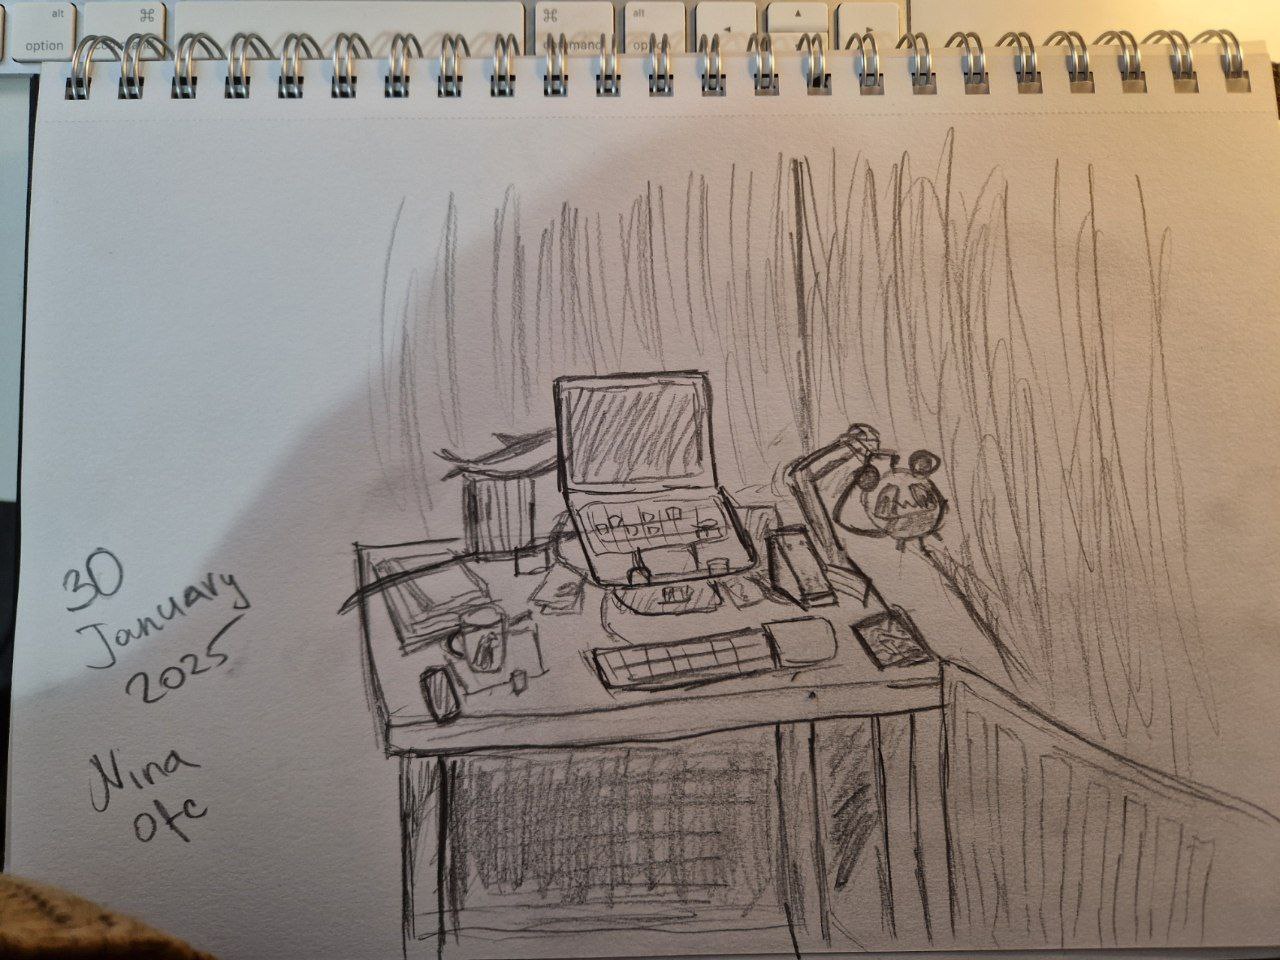 alt ⌘ ⌘ alt
option command command option
◄ ▲ ►
30
January
2025
Nina
ofc